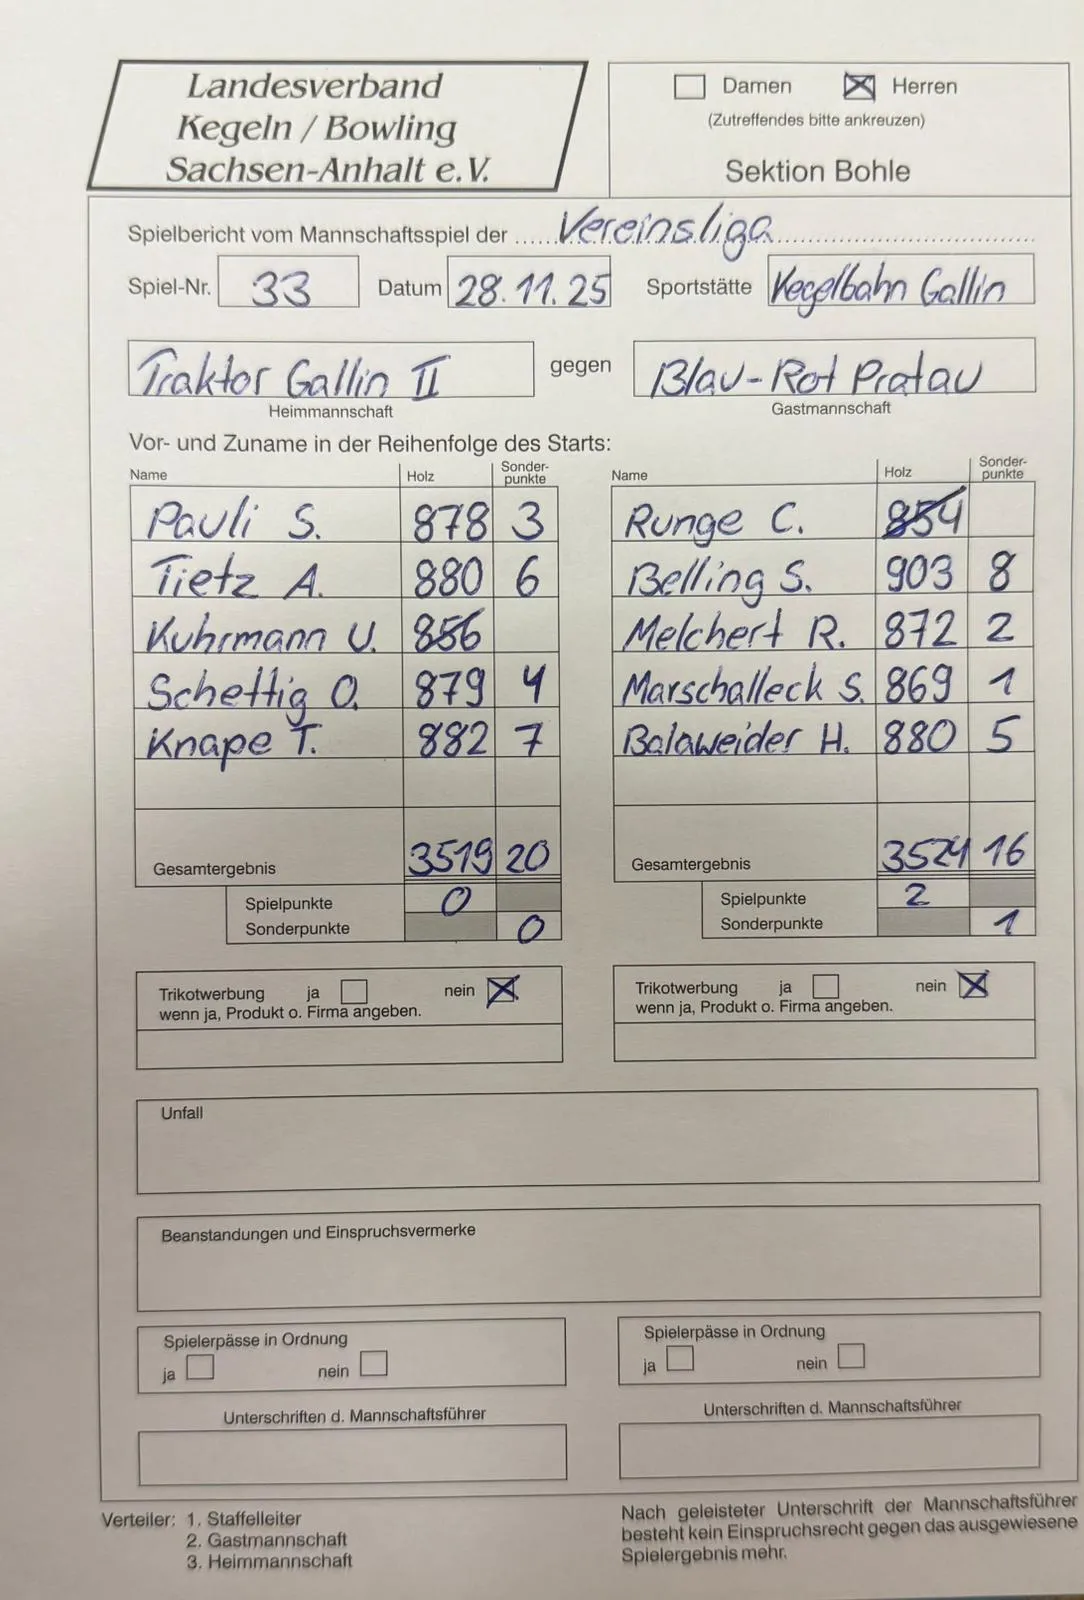 Landesverband
Kegeln / Bowling
Sachsen-Anhalt e.V.
Damen Herren
(Zutreffendes bitte ankreuzen)
Sektion Bohle
Spielbericht vom Mannschaftsspiel der ..... Vereinsliga
Spiel-Nr. 33 Datum 28.11.25 Sportstätte Kegelbahn Gallin
Traktor Gallin II gegen Blau-Rot Pratau
Heimmannschaft Gastmannschaft
Vor- und Zuname in der Reihenfolge des Starts:
Name Holz Sonder-punkte Name Holz Sonder-punkte
Pauli S. 878 3 Runge C. 854
Tietz A. 880 6 Belling S. 903 8
Kuhrmann U. 856 Melchert R. 872 2
Schettig O. 879 4 Marschalleck S. 869 1
Knape T. 882 7 Balaweider H. 880 5
Gesamtergebnis 3519 20 Gesamtergebnis 3524 16
Spielpunkte 0 Spielpunkte 2
Sonderpunkte 0 Sonderpunkte 1
Trikotwerbung ja nein Trikotwerbung ja nein
wenn ja, Produkt o. Firma angeben. wenn ja, Produkt o. Firma angeben.
Unfall
Beanstandungen und Einspruchsvermerke
Spielerpässe in Ordnung Spielerpässe in Ordnung
ja nein ja nein
Unterschriften d. Mannschaftsführer Unterschriften d. Mannschaftsführer
Verteiler: 1. Staffelleiter
2. Gastmannschaft
3. Heimmannschaft
Nach geleisteter Unterschrift der Mannschaftsführer
besteht kein Einspruchsrecht gegen das ausgewiesene
Spielergebnis mehr.